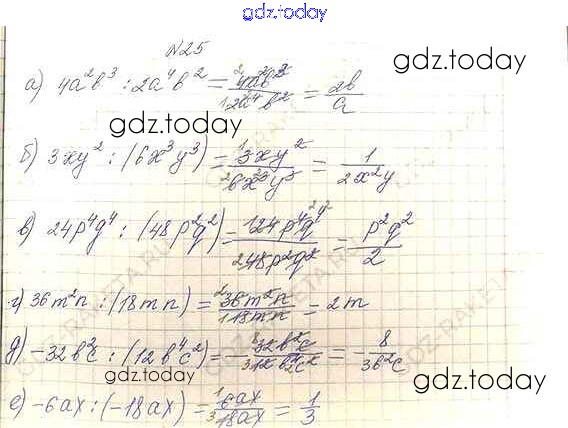 gdz.today
№25
gdz.today
а) 4a²b³ : 2a⁴b² = 4a²b³ / 2a⁴b² = 2b / a
gdz.today
б) 3xy² : (6x³y³) = 3xy² / 6x³y³ = 1 / 2x²y
gdz.today
в) 24p⁴q⁴ : (48p²q²) = 24p⁴q⁴ / 48p²q² = p²q² / 2
г) 36m²n : (18mn) = 36m²n / 18mn = 2m
д) -32b²c : (12b⁴c²) = - 32b²c / 12b⁴c² = - 8 / 3b²c
gdz.today
gdz.today
е) -6ax : (-18ax) = 6ax / 18ax = 1 / 3